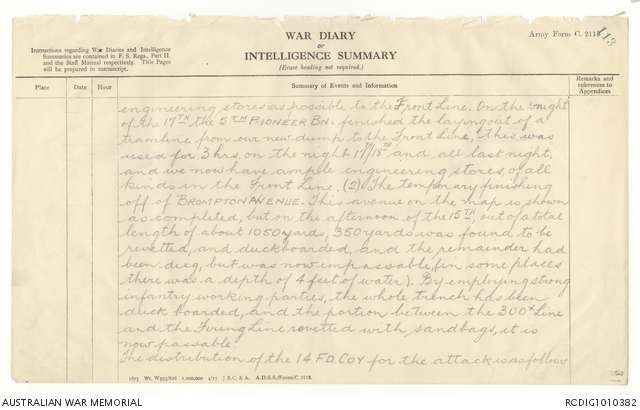 WAR DIARY
or
INTELLIGENCE SUMMARY
(Erase heading not required.)
Army Form C. 2118
113
Instructions regarding War Diaries and Intelligence
Summaries are contained in F. S. Regs., Part II.
and the Staff Manual respectively. Title Pages
will be prepared in manuscript.
Place Date Hour Summary of Events and Information Remarks and references to Appendices
engineering stores as possible to the Front Line. On the night
of the 17TH the 5TH PIONEER BN. finished the laying out of a
tramline from our new dump to the Front Line, this was
used for 3 hrs, on the night 17/18TH and all last night,
and we now have ample engineering stores, of all
kinds in the Front Line. (2) The temporary finishing
off of BROMPTON AVENUE. This avenue on the map is shown
as completed, but on the afternoon of the 15TH, out of a total
length of about 1050 yards, 350 yards was found to be
revetted, and duckboarded, and the remainder had
been dug, but was now impassable, (in some places
there was a depth of 4 feet of water). By employing strong
infantry working parties, the whole trench has been
duck boarded, and the portion between the 300x Line
and the Firing Line revetted with sandbags, it is
now passable
The distribution of the 14. FD. COY for the attack is as follow
AUSTRALIAN WAR MEMORIAL
RCDIG1010382